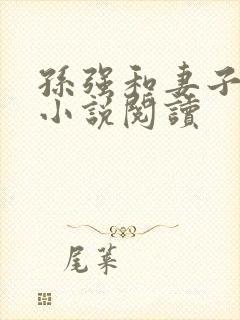 孫強和妻子
小說閱讀
尾葉